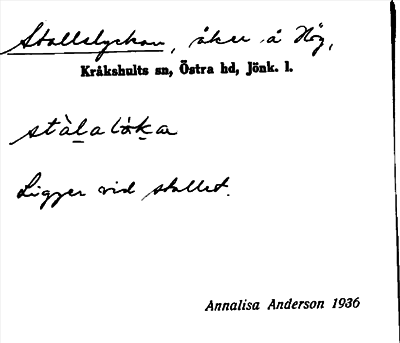 Stallslyckan, åker å Hög,
Kråkshults sn, Östra hd, Jönk. l.
stàlalákа
Ligger vid stallet.
Annalisa Anderson 1936